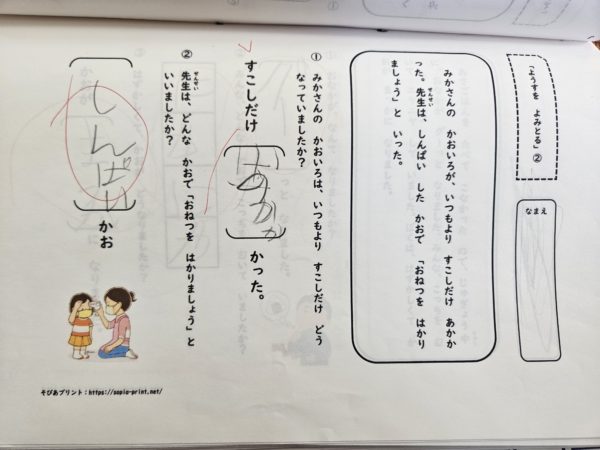 「ようすを よみとる」②
なまえ
みかさんの かおいろが、いつもより すこしだけ あかか
った。先生は、しんぱい した かおで 「おねつを はかり
ましょう」と いった。
① みかさんの かおいろは、いつもより すこしだけ どう
なっていましたか?
すこしだけ あか かった。
② 先生は、どんな かおで「おねつを はかりましょう」と
いいましたか?
しんぱい かお
そぴあプリント:https://sopia-print.net/